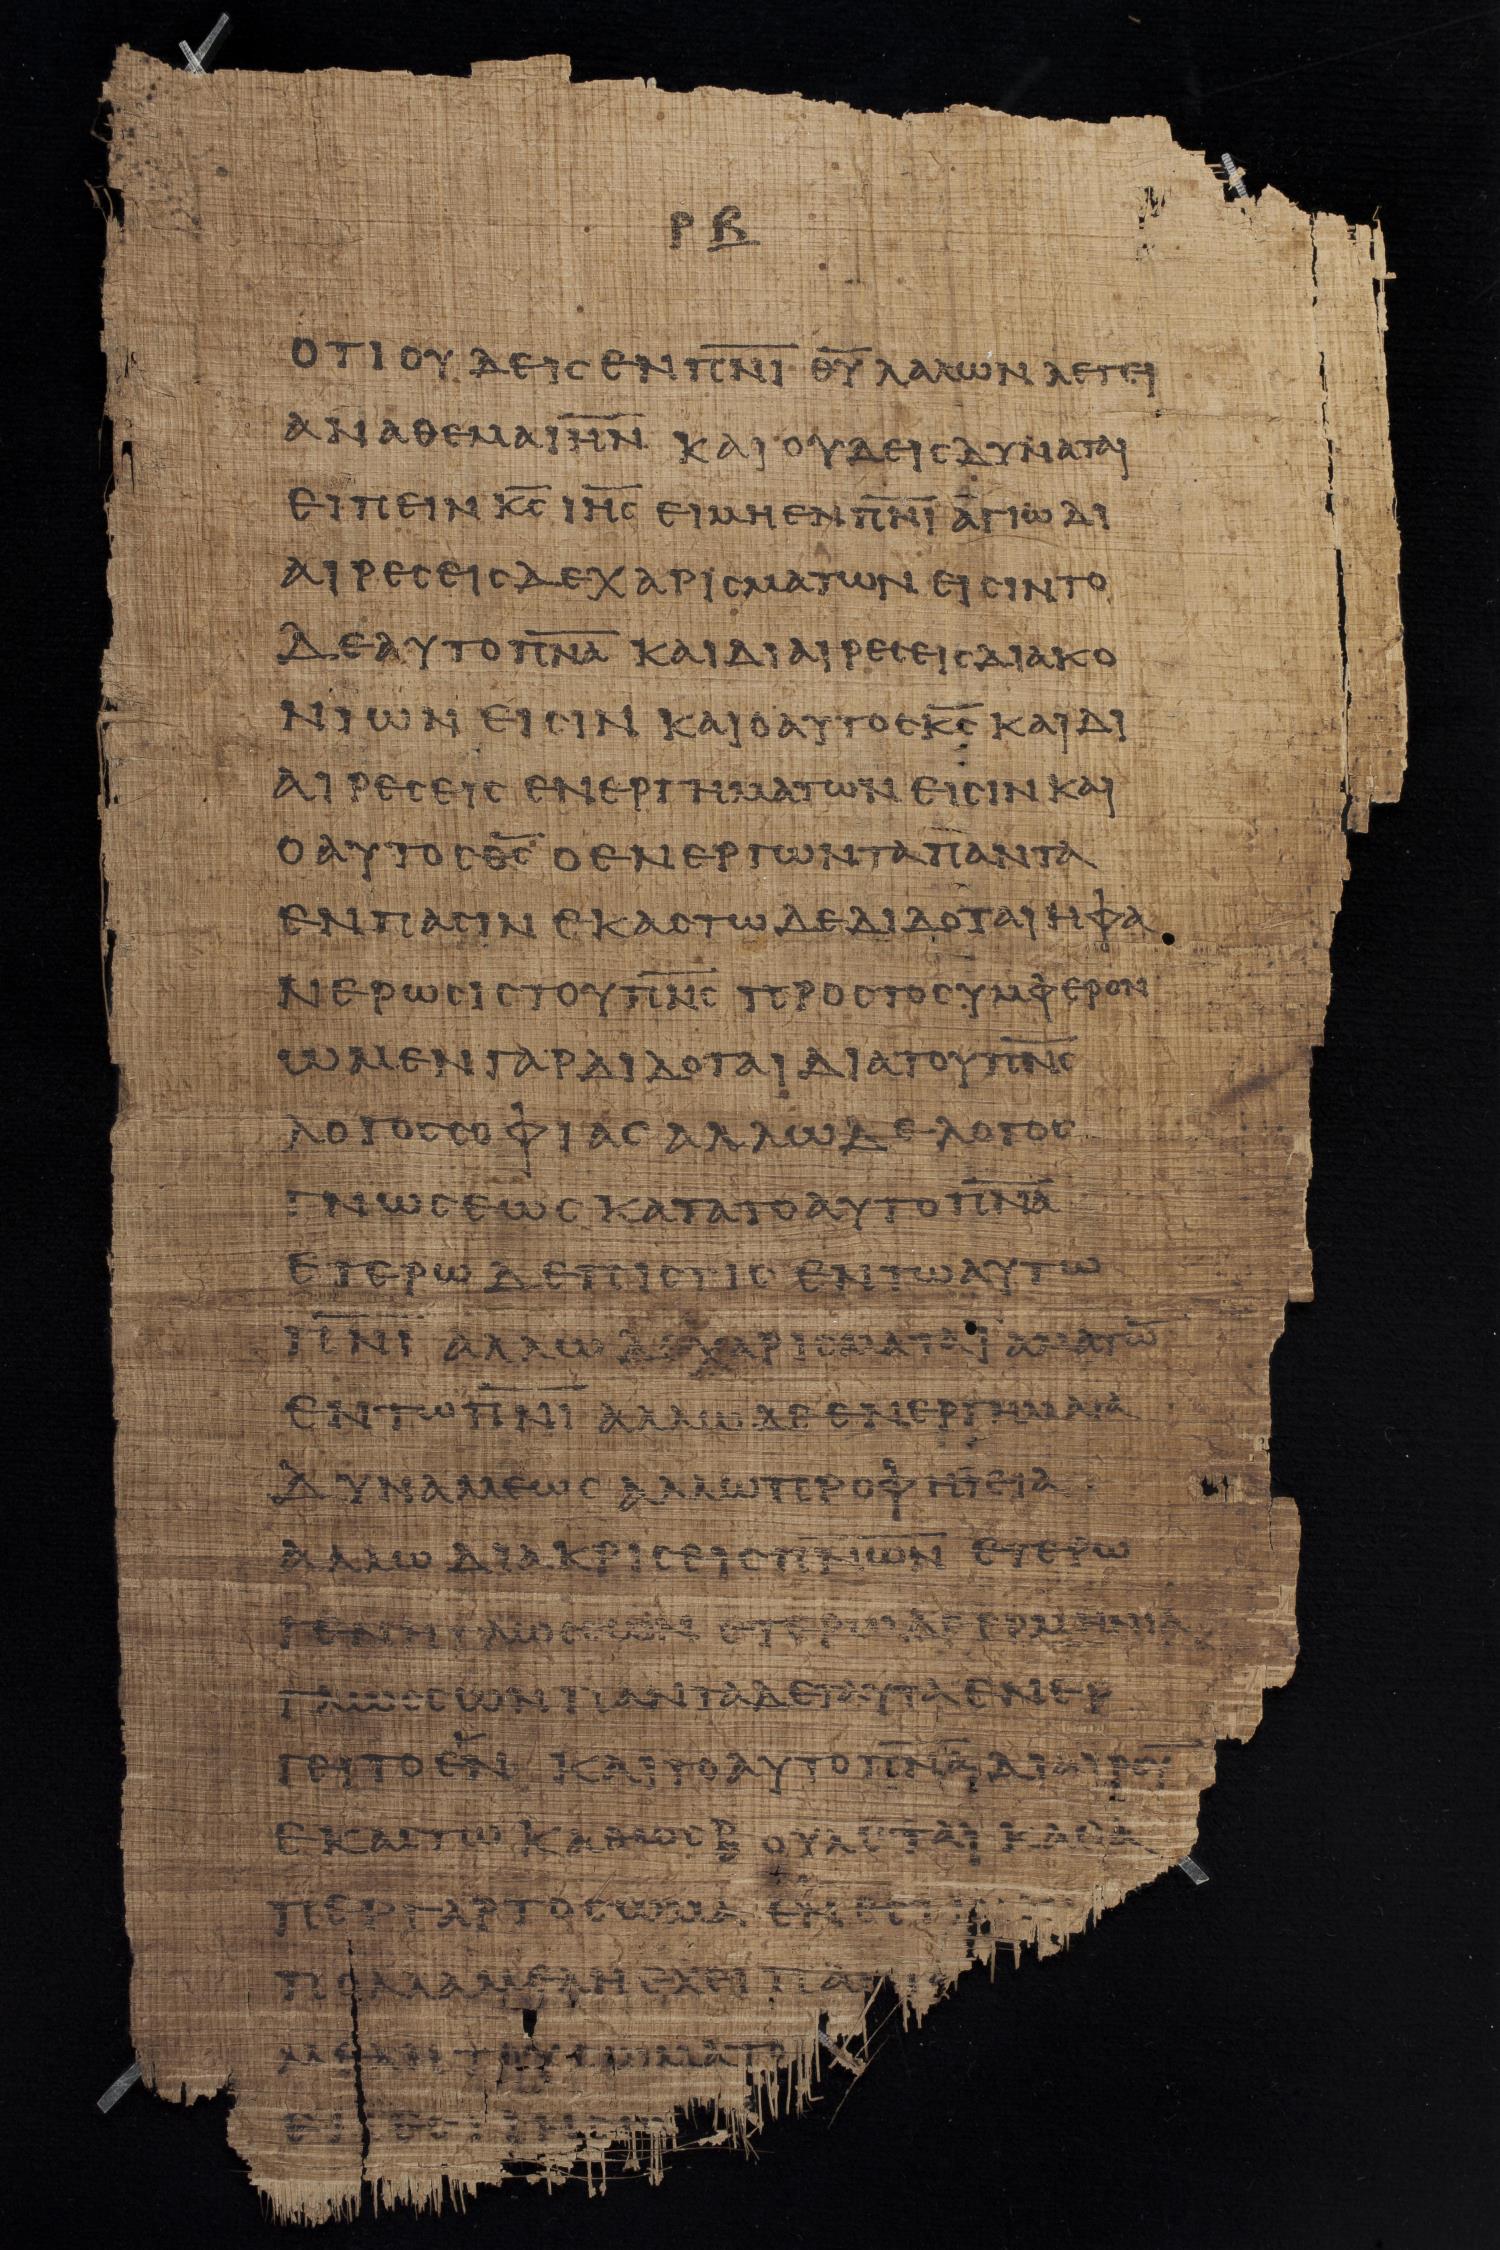 ΡΒ
ΟΤΙ ΟΥΔΕΙΣ ΕΝ Π̅Ν̅Ι̅ Θ̅Υ̅ ΛΑΛΩΝ ΛΕΓΕΙ
ΑΝΑΘΕΜΑ Ι̅Η̅Ν̅ ΚΑΙ ΟΥΔΕΙΣ ΔΥΝΑΤΑΙ
ΕΙΠΕΙΝ Κ̅Σ̅ Ι̅Η̅Σ̅ ΕΙ ΜΗ ΕΝ Π̅Ν̅Ι̅ ΑΓΙΩ ΔΙ
ΑΙΡΕΣΕΙΣ ΔΕ ΧΑΡΙΣΜΑΤΩΝ ΕΙΣΙΝ ΤΟ
ΔΕ ΑΥΤΟ Π̅Ν̅Α̅ ΚΑΙ ΔΙΑΙΡΕΣΕΙΣ ΔΙΑΚΟ
ΝΙΩΝ ΕΙΣΙΝ ΚΑΙ Ο ΑΥΤΟΣ Κ̅Σ̅ ΚΑΙ ΔΙ
ΑΙΡΕΣΕΙΣ ΕΝΕΡΓΗΜΑΤΩΝ ΕΙΣΙΝ ΚΑΙ
Ο ΑΥΤΟΣ Θ̅Σ̅ Ο ΕΝΕΡΓΩΝ ΤΑ ΠΑΝΤΑ
ΕΝ ΠΑΣΙΝ ΕΚΑΣΤΩ ΔΕ ΔΙΔΟΤΑΙ Η ΦΑ
ΝΕΡΩΣΙΣ ΤΟΥ Π̅Ν̅Σ̅ ΠΡΟΣ ΤΟ ΣΥΜΦΕΡΟΝ
Ω ΜΕΝ ΓΑΡ ΔΙΔΟΤΑΙ ΔΙΑ ΤΟΥ Π̅Ν̅Σ̅
ΛΟΓΟΣ ΣΟΦΙΑΣ ΑΛΛΩ ΔΕ ΛΟΓΟΣ
ΓΝΩΣΕΩΣ ΚΑΤΑ ΤΟ ΑΥΤΟ Π̅Ν̅Α̅
ΕΤΕΡΩ ΔΕ ΠΙΣΤΙΣ ΕΝ ΤΩ ΑΥΤΩ
Π̅Ν̅Ι̅ ΑΛΛΩ ΔΕ ΧΑΡΙΣΜΑΤΑ ΙΑΜΑΤΩ̅
ΕΝ ΤΩ Π̅Ν̅Ι̅ ΑΛΛΩ ΔΕ ΕΝΕΡΓΗΜΑΤΑ
ΔΥΝΑΜΕΩΣ ΑΛΛΩ ΠΡΟΦΗΤΕΙΑ
ΑΛΛΩ ΔΙΑΚΡΙΣΕΙΣ Π̅Ν̅Ω̅Ν̅ ΕΤΕΡΩ
ΓΕΝΗ ΓΛΩΣΣΩΝ ΕΤΕΡΩ ΔΕ ΕΡΜΗΝΙΑ
ΓΛΩΣΣΩΝ ΠΑΝΤΑ ΔΕ ΤΑΥΤΑ ΕΝΕΡ
ΓΕΙ ΤΟ ΕΝ ΚΑΙ ΤΟ ΑΥΤΟ Π̅Ν̅Α̅ ΔΙΑΙΡΟΥ̅
ΕΚΑΣΤΩ ΚΑΘΩΣ ΒΟΥΛΕΤΑΙ ΚΑΘΑ
ΠΕΡ ΓΑΡ ΤΟ ΣΩΜΑ ΕΝ ΕΣΤΙΝ
ΠΟΛΛΑ ΜΕΛΗ ΕΧΕΙ ΠΑΝΤΑ
ΜΕΛΗ ΤΟΥ ΣΩΜΑΤΟ